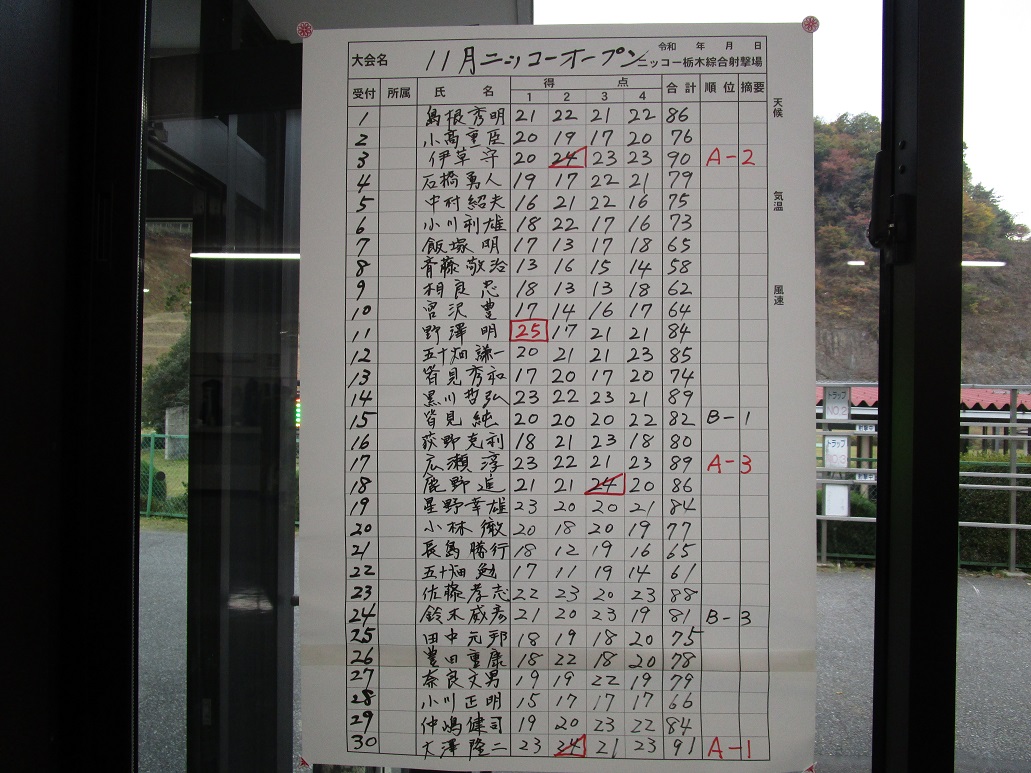 大会名 11月ニッコーオープン 令和 年 月 日
ニッコー栃木綜合射撃場
受付 所属 氏 名 得 点 合計 順位 摘要
1 2 3 4
1 島根秀明 21 22 21 22 86
2 小高重臣 20 19 17 20 76
3 伊草守 20 24 23 23 90 A-2
4 石橋勇人 19 17 22 21 79
5 中村紹夫 16 21 22 16 75
6 小川利雄 18 22 17 16 73
7 飯塚明 17 13 17 18 65
8 斉藤敬治 13 16 15 14 58
9 相良忠 18 13 13 18 62
10 宮沢豊 17 14 16 17 64
11 野澤明 25 17 21 21 84
12 五十畑謙一 20 21 21 23 85
13 皆見秀和 17 20 17 20 74
14 黒川哲弘 23 22 23 21 89
15 皆見純 20 20 20 22 82 B-1
16 荻野克利 18 21 23 18 80
17 広瀬淳 23 22 21 23 89 A-3
18 鹿野進 21 21 24 20 86
19 星野幸雄 23 20 20 21 84
20 小林徹 20 18 20 19 77
21 長島勝行 18 12 19 16 65
22 五十畑勉 17 11 19 14 61
23 佐藤孝志 22 23 20 23 88
24 鈴木威彦 21 20 23 19 81 B-3
25 田中元邦 18 19 18 20 75
26 豊田重康 18 22 18 20 78
27 奈良文男 19 19 22 19 79
28 小川正明 15 17 17 17 66
29 仲嶋健司 19 20 23 22 84
30 大澤隆二 23 24 21 23 91 A-1
天候
気温
風速
トラップ
NO.2
トラップ
NO.3